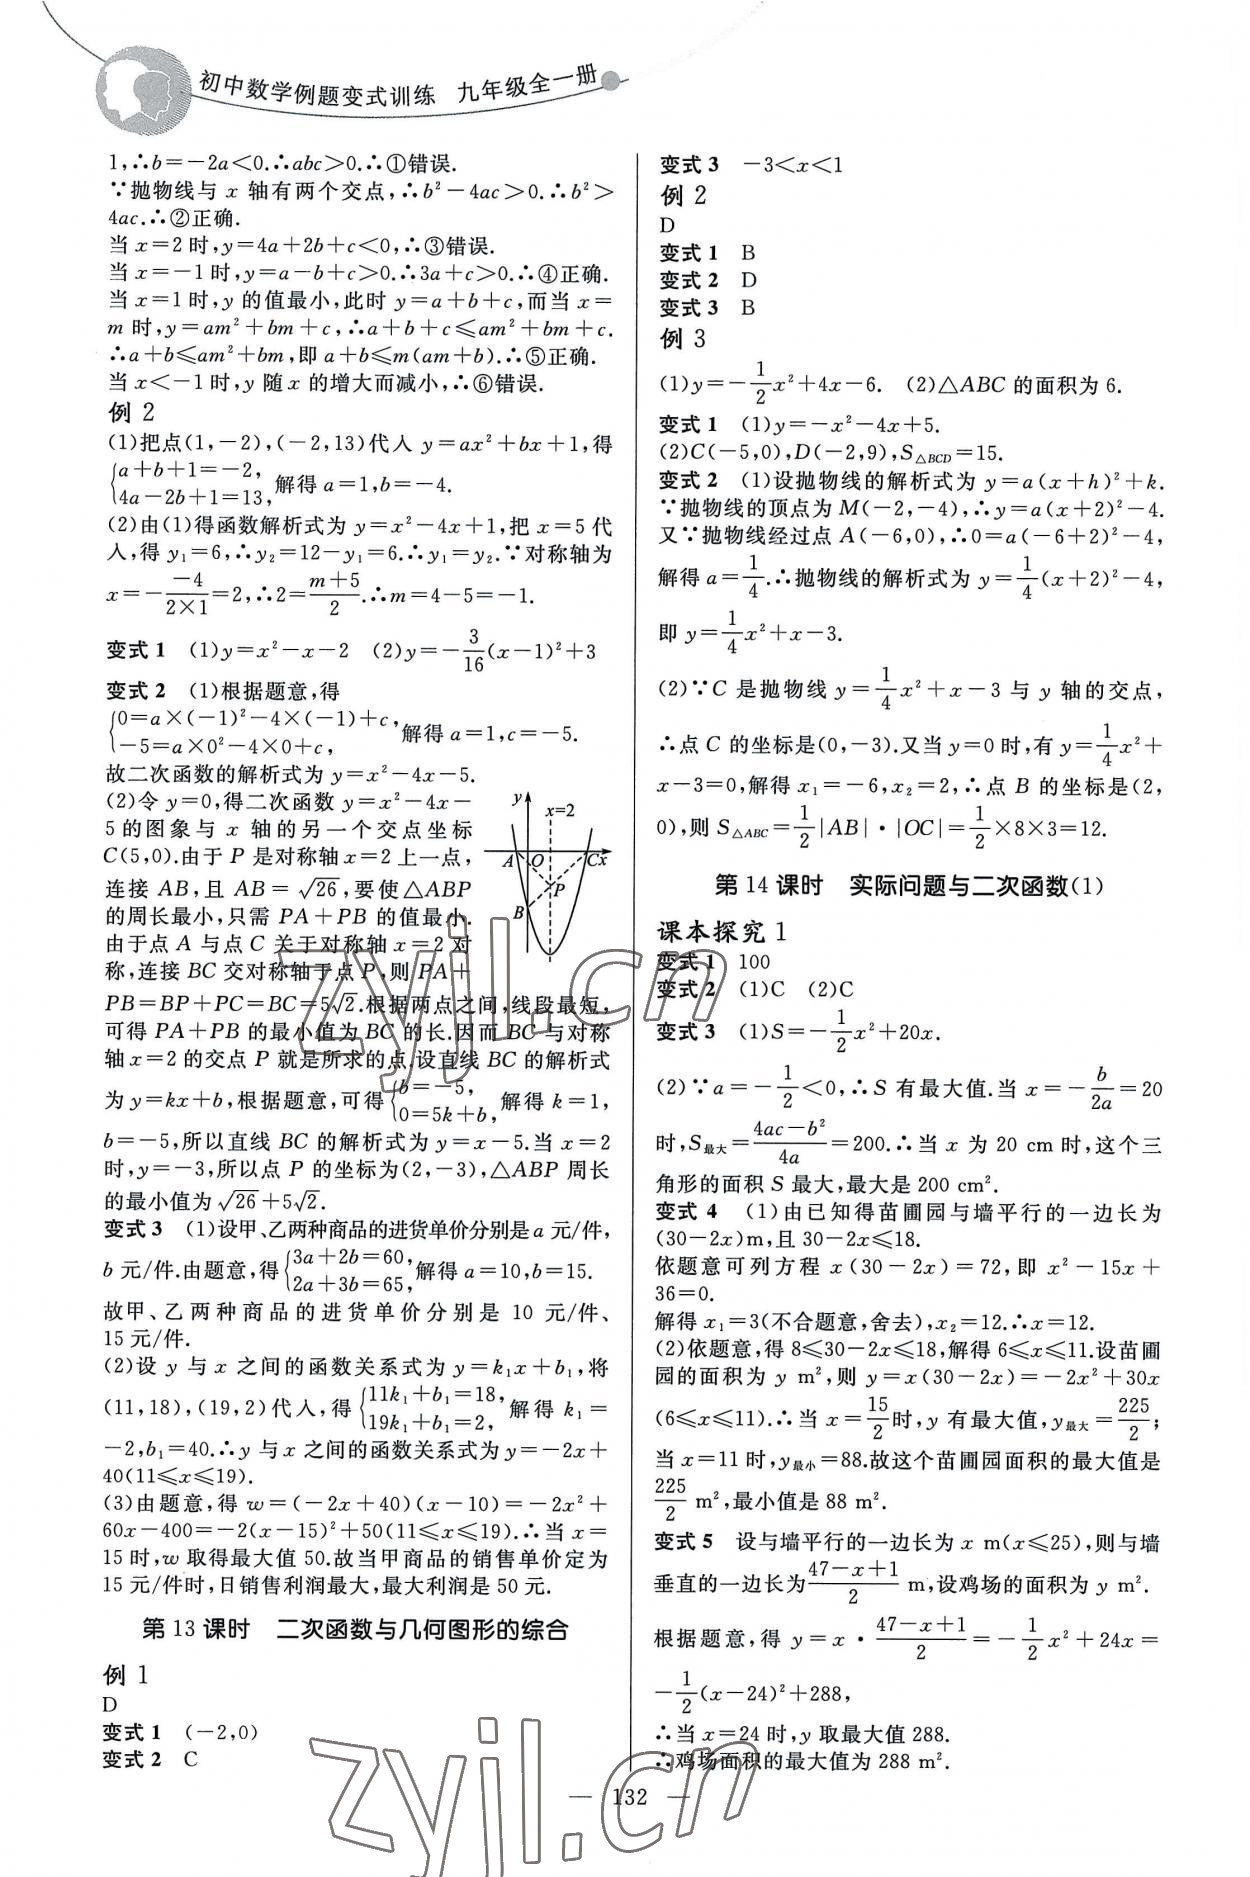 初中数学例题变式训练 九年级全一册
1,∴b=-2a<0.∴abc>0.∴①错误.
∵抛物线与 x 轴有两个交点,∴b²-4ac>0.∴b²>
4ac.∴②正确.
当 x=2 时,y=4a+2b+c<0,∴③错误.
当 x=-1 时,y=a-b+c>0.∴3a+c>0.∴④正确.
当 x=1 时,y 的值最小,此时 y=a+b+c,而当 x=
m 时,y=am²+bm+c,∴a+b+c≤am²+bm+c.
∴a+b≤am²+bm,即 a+b≤m(am+b).∴⑤正确.
当 x<-1 时,y 随 x 的增大而减小,∴⑥错误.
例 2
(1)把点(1,-2),(-2,13)代入 y=ax²+bx+1,得
{a+b+1=-2,
4a-2b+1=13, 解得 a=1,b=-4.
(2)由(1)得函数解析式为 y=x²-4x+1,把 x=5 代
入,得 y₁=6,∴y₂=12-y₁=6.∴y₁=y₂.∵对称轴为
x=-\frac{-4}{2×1}=2,∴2=\frac{m+5}{2}.∴m=4-5=-1.
变式 1 (1)y=x²-x-2 (2)y=-\frac{3}{16}(x-1)²+3
变式 2 (1)根据题意,得
{0=a×(-1)²-4×(-1)+c,
-5=a×0²-4×0+c, 解得 a=1,c=-5.
故二次函数的解析式为 y=x²-4x-5.
(2)令 y=0,得二次函数 y=x²-4x-
5 的图象与 x 轴的另一个交点坐标
C(5,0).由于 P 是对称轴 x=2 上一点,
连接 AB,且 AB=√26,要使△ABP
的周长最小,只需 PA+PB 的值最小.
由于点 A 与点 C 关于对称轴 x=2 对
称,连接 BC 交对称轴于点 P,则 PA+
PB=BP+PC=BC=5√2.根据两点之间,线段最短,
可得 PA+PB 的最小值为 BC 的长.因而 BC 与对称
轴 x=2 的交点 P 就是所求的点.设直线 BC 的解析式
为 y=kx+b,根据题意,可得{b=-5,
0=5k+b, 解得 k=1,
b=-5,所以直线 BC 的解析式为 y=x-5.当 x=2
时,y=-3,所以点 P 的坐标为(2,-3),△ABP 周长
的最小值为√26+5√2.
y
x=2
A
O
C
x
P
B
变式 3 (1)设甲、乙两种商品的进货单价分别是 a 元/件,
b 元/件.由题意,得{3a+2b=60,
2a+3b=65, 解得 a=10,b=15.
故甲、乙两种商品的进货单价分别是 10 元/件、
15 元/件.
(2)设 y 与 x 之间的函数关系式为 y=k₁x+b₁,将
(11,18),(19,2)代入,得{11k₁+b₁=18,
19k₁+b₁=2, 解得 k₁=
-2,b₁=40.∴y 与 x 之间的函数关系式为 y=-2x+
40(11≤x≤19).
(3)由题意,得 w=(-2x+40)(x-10)=-2x²+
60x-400=-2(x-15)²+50(11≤x≤19).∴当 x=
15 时,w 取得最大值 50.故当甲商品的销售单价定为
15 元/件时,日销售利润最大,最大利润是 50 元.
第 13 课时 二次函数与几何图形的综合
例 1
D
变式 1 (-2,0)
变式 2 C
变式 3 -3<x<1
例 2
D
变式 1 B
变式 2 D
变式 3 B
例 3
(1)y=-\frac{1}{2}x²+4x-6. (2)△ABC 的面积为 6.
变式 1 (1)y=-x²-4x+5.
(2)C(-5,0),D(-2,9),S△BCD=15.
变式 2 (1)设抛物线的解析式为 y=a(x+h)²+k.
∵抛物线的顶点为 M(-2,-4),∴y=a(x+2)²-4.
又∵抛物线经过点 A(-6,0),∴0=a(-6+2)²-4,
解得 a=\frac{1}{4}.∴抛物线的解析式为 y=\frac{1}{4}(x+2)²-4,
即 y=\frac{1}{4}x²+x-3.
(2)∵C 是抛物线 y=\frac{1}{4}x²+x-3 与 y 轴的交点,
∴点 C 的坐标是(0,-3).又当 y=0 时,有 y=\frac{1}{4}x²+
x-3=0,解得 x₁=-6,x₂=2,∴点 B 的坐标是(2,
0),则 S△ABC=\frac{1}{2}|AB|·|OC|=\frac{1}{2}×8×3=12.
第 14 课时 实际问题与二次函数(1)
课本探究 1
变式 1 100
变式 2 (1)C (2)C
变式 3 (1)S=-\frac{1}{2}x²+20x.
(2)∵a=-\frac{1}{2}<0,∴S 有最大值.当 x=-\frac{b}{2a}=20
时,S最大=\frac{4ac-b²}{4a}=200.∴当 x 为 20 cm 时,这个三
角形的面积 S 最大,最大是 200 cm².
变式 4 (1)由已知得苗圃园与墙平行的一边长为
(30-2x)m,且 30-2x≤18.
依题意可列方程 x(30-2x)=72,即 x²-15x+
36=0.
解得 x₁=3(不合题意,舍去),x₂=12.∴x=12.
(2)依题意,得 8≤30-2x≤18,解得 6≤x≤11.设苗圃
园的面积为 y m²,则 y=x(30-2x)=-2x²+30x
(6≤x≤11).∴当 x=\frac{15}{2}时,y 有最大值,y最大=\frac{225}{2};
当 x=11 时,y最小=88.故这个苗圃园面积的最大值是
\frac{225}{2} m²,最小值是 88 m².
变式 5 设与墙平行的一边长为 x m(x≤25),则与墙
垂直的一边长为\frac{47-x+1}{2} m,设鸡场的面积为 y m².
根据题意,得 y=x·\frac{47-x+1}{2}=-\frac{1}{2}x²+24x=
-\frac{1}{2}(x-24)²+288,
∴当 x=24 时,y 取最大值 288.
∴鸡场面积的最大值为 288 m².
— 132 —
zyjl.cn
zyjl.cn